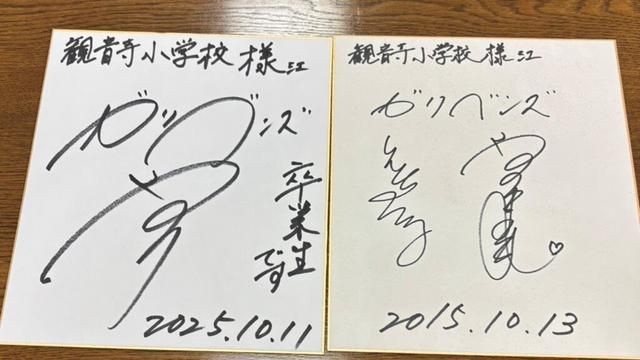 観音寺小学校 様江
ガリベンズ
卒業生
です
2025.10.11
観音寺小学校 様江
ガリベンズ
2015.10.13